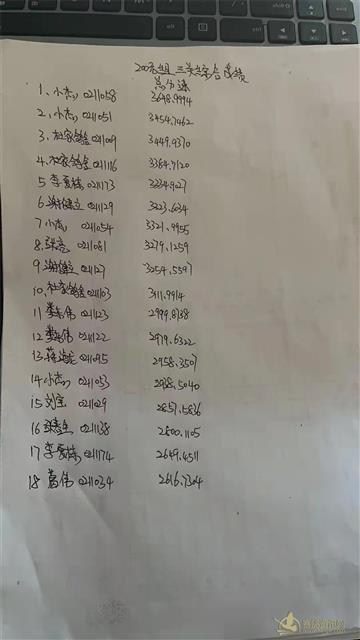 200元组 三关综合成绩
总分速
1、小杰 0211058 3648.9994
2、小杰 0211051 3454.7462
3、杜家鸽舍 021109 3449.9370
4、杜家鸽舍 0211116 3384.7120
5 李重核 0211173 3234.927
6 谢德立 0211129 3223.6034
7 小杰 0211054 3321.9955
8. 021081 3279.1259
9 谢德立 021127 3254.5597
10、杜家鸽舍 021103 3111.9914
11 伟 021123 2999.8738
12 伟 021122 2979.6322
13、021095 2958.3507
14 小杰 0211053 2938.5040
15 刘宝 021029 2857.5836
16 0211138 2800.1105
17 李重核 0211174 2649.4511
18 葛伟 0211034 2616.7304